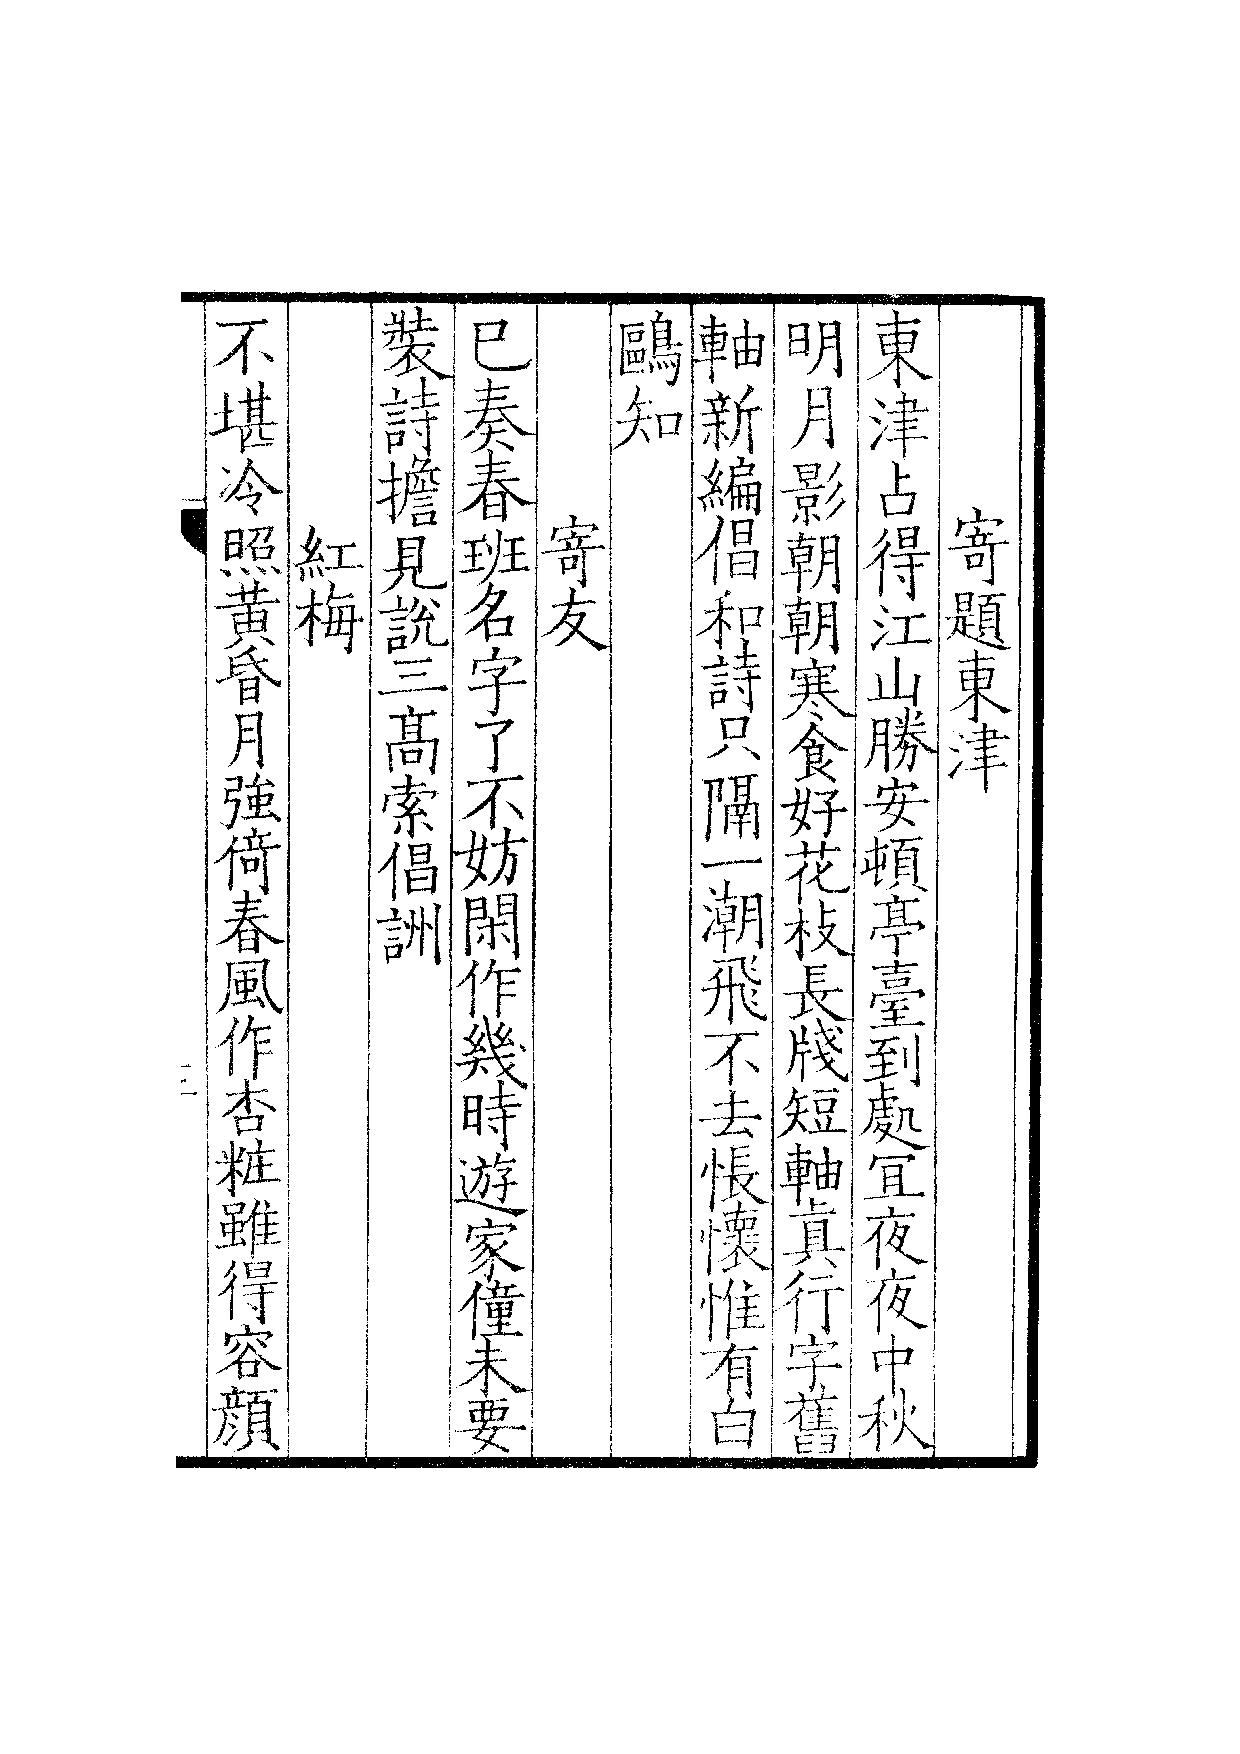 寄題東津
東津占得江山勝安頓亭臺到處冝夜夜中秋
明月影朝朝寒食好花枝長牋短軸眞行字舊
軸新編倡和詩只隔一潮飛不去悵懷惟有白
鷗知
寄友
已奏春班名字了不妨閑作幾時遊家僮未要
裝詩擔見說三髙索倡詶
紅梅
不堪冷照黄昏月強倚春風作杏粧雖得容顔